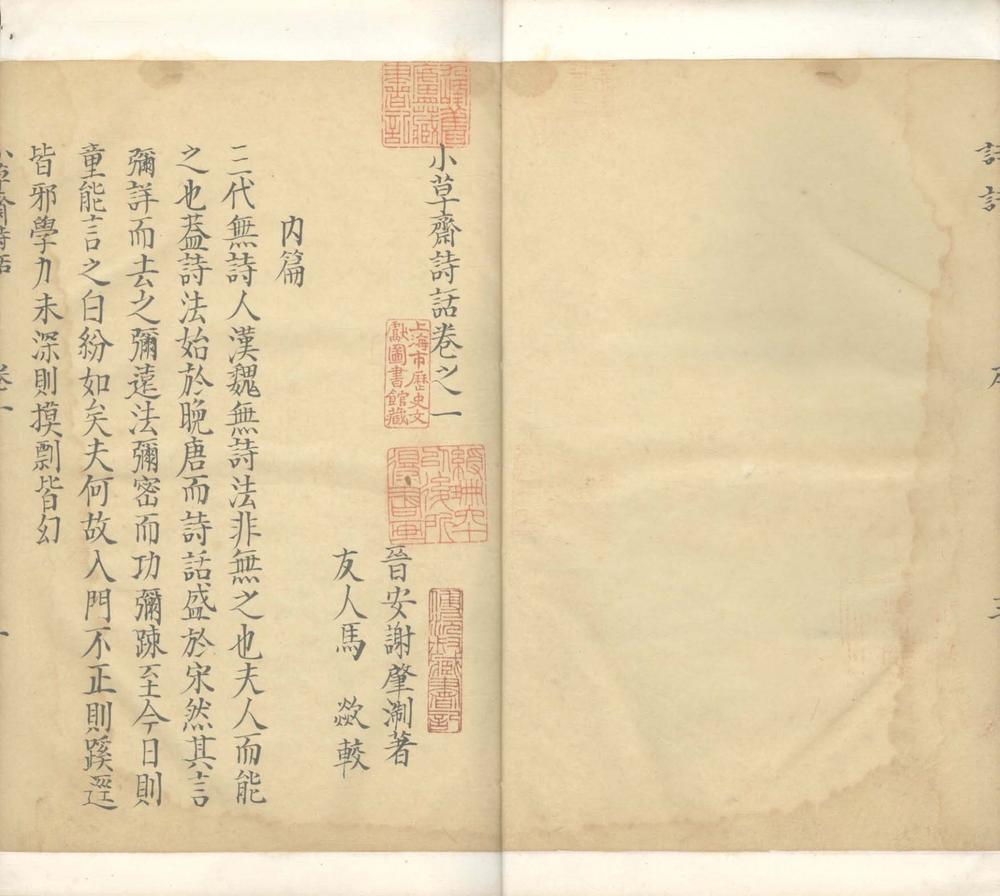 小草齋詩話卷之一
晉安謝肇淛著
友人馬歘較
內篇
三代無詩人漢魏無詩法非無之也夫人而能
之也葢詩法始於晚唐而詩話盛於宋然其言
彌詳而去之彌遠法彌密而功彌踈至今日則
童能言之白紛如矣夫何故入門不正則蹊逕
皆邪學力未深則摸剽皆幻
小草齋詩話 卷一
上海市歷史文
獻圖書館藏